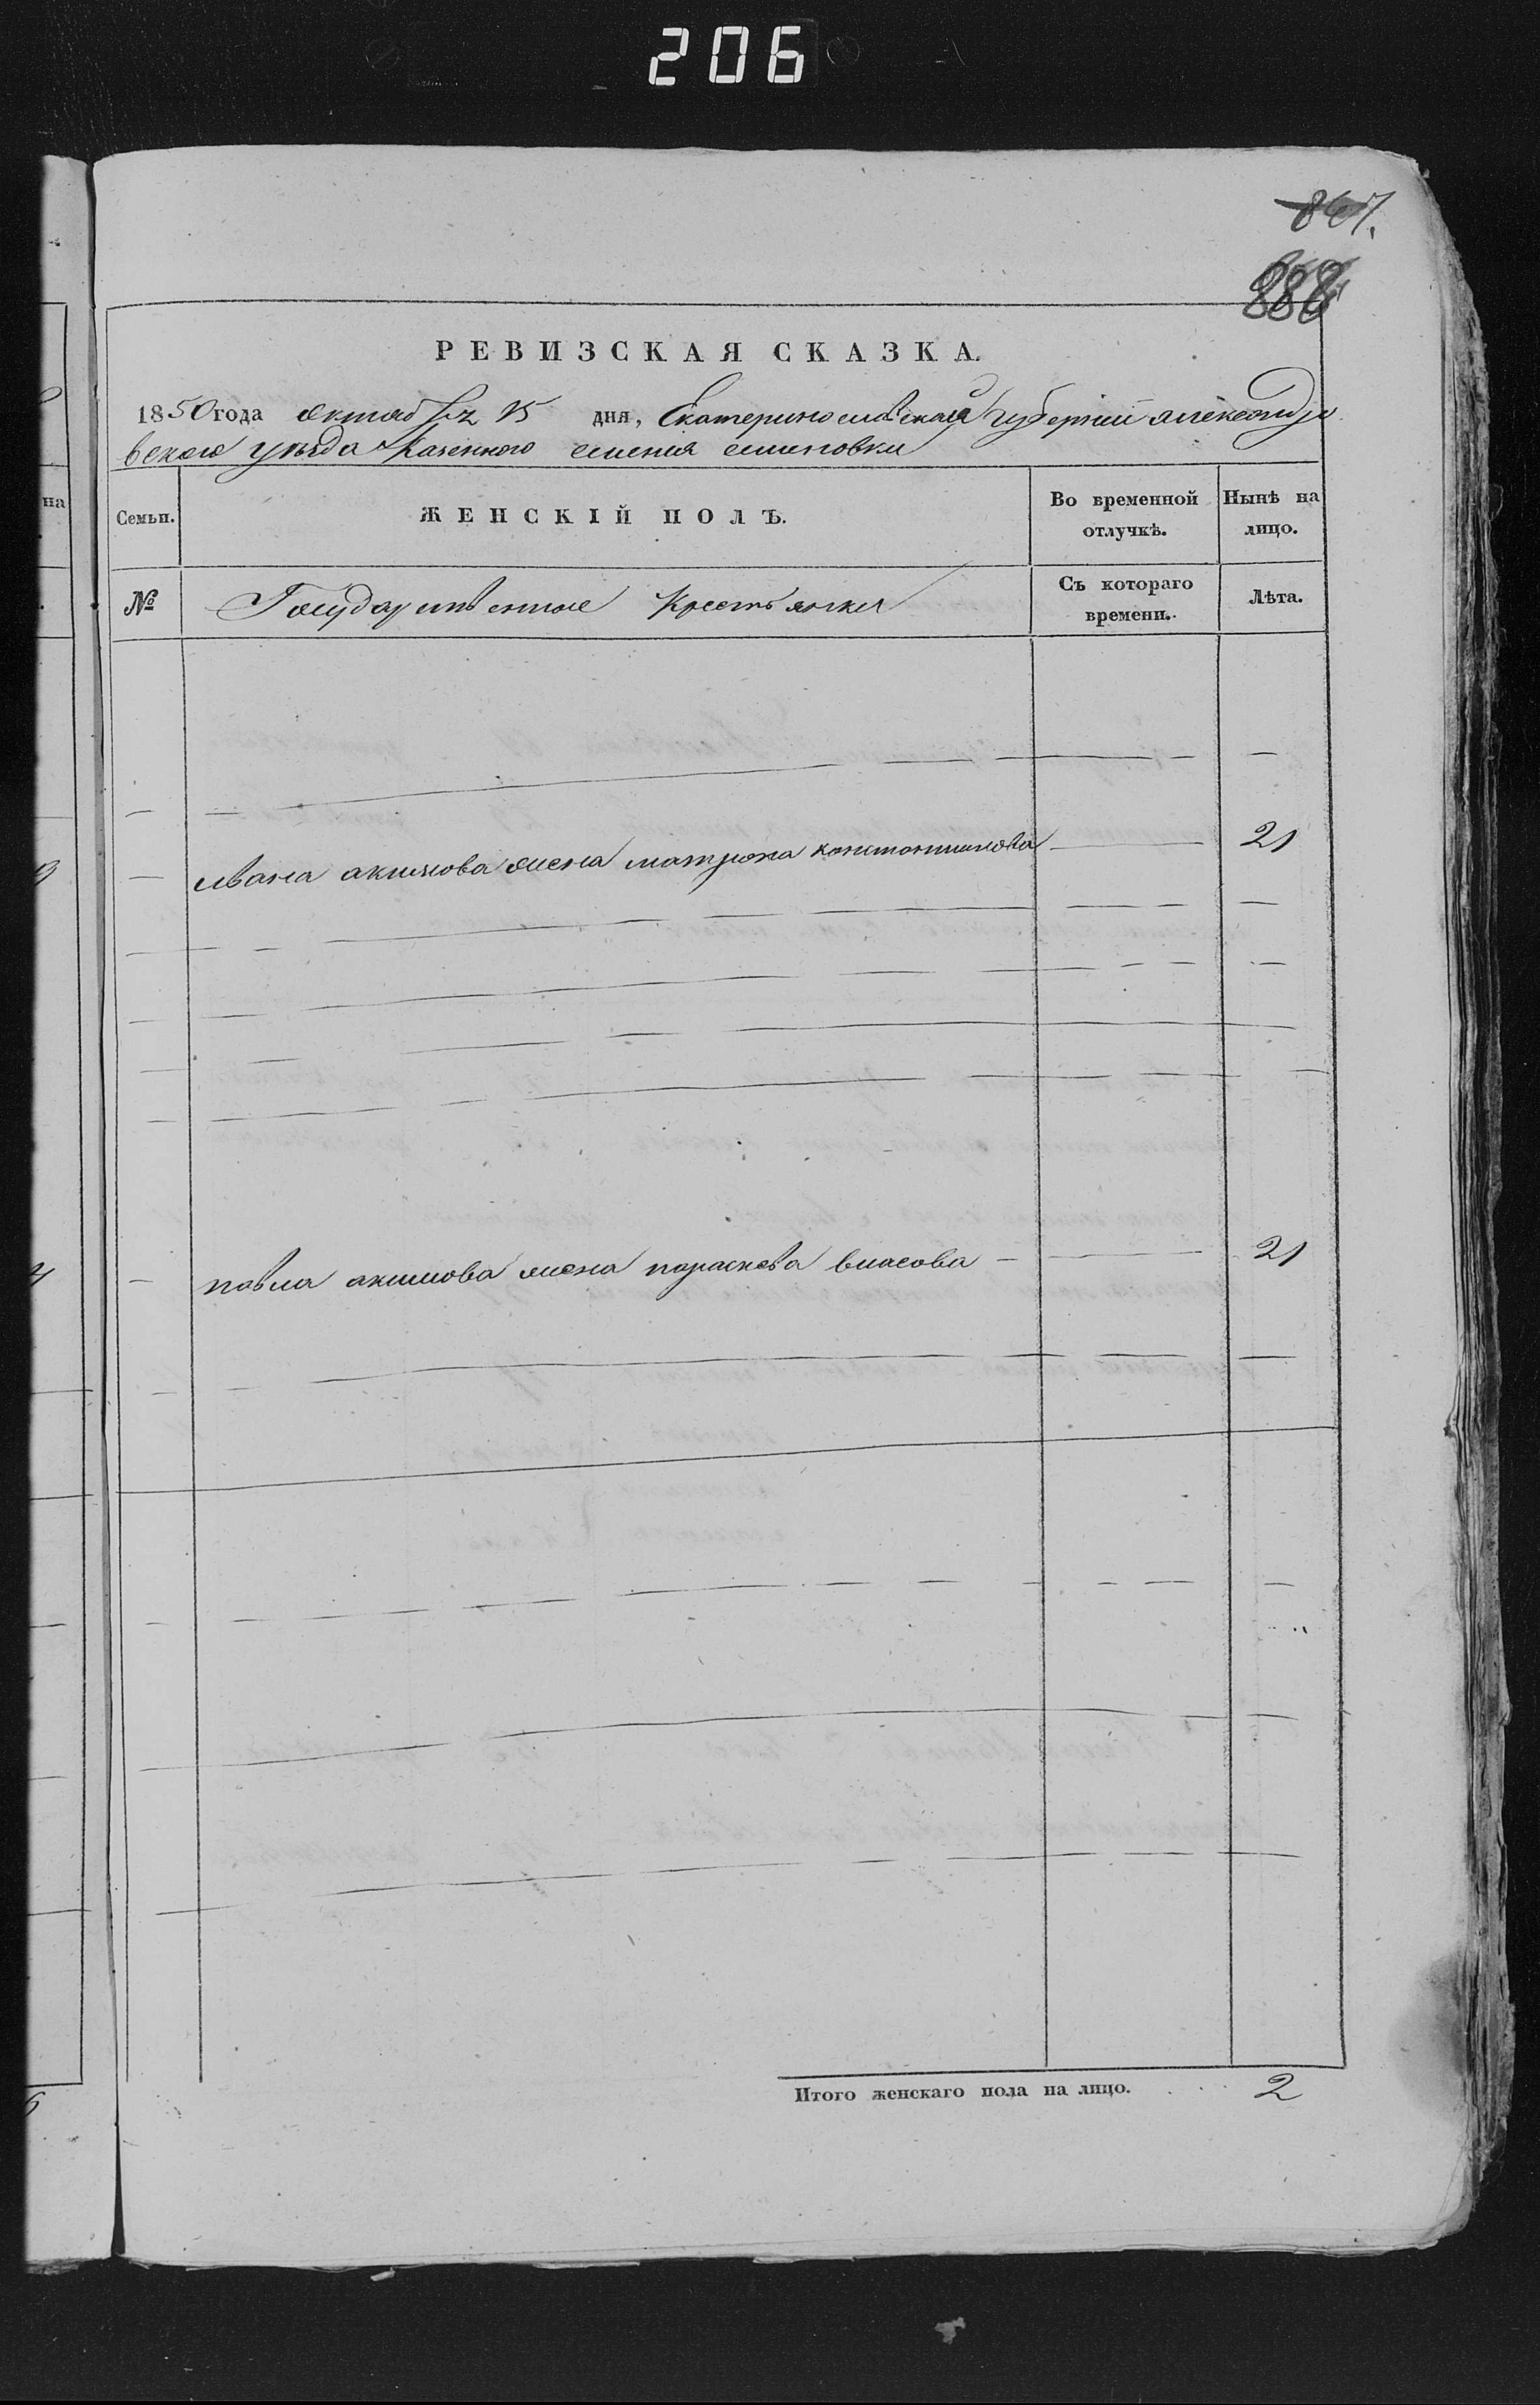 206
867.
888
РЕВИЗСКАЯ СКАЗКА.
1850 года октяб 15 дня, Екатеринославской губернии александро
вского уѣзда казенного селения семеновки
Семьи.
ЖЕНСКІЙ ПОЛЪ.
Во временной отлучкѣ.
Нынѣ на лицо.
№
Государственные крестьянки
Съ котораго времени.
Лѣта.
ивана акимова жена матрона константинова 21
павла акимова жена параскева власова 21
Итого женскаго пола на лицо. . . . 2
на